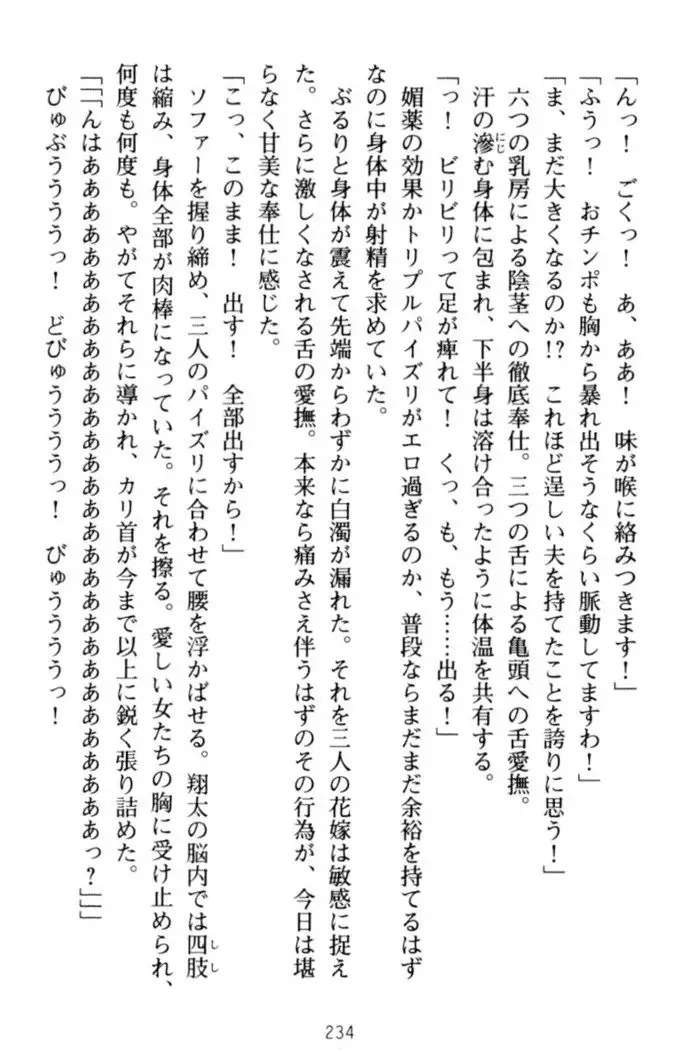 「んっ！　ごくっ！　あ、ああ！　味が喉に絡みつきます！」
「ふうっ！　おチンポも胸から暴れ出そうなくらい脈動してますわ！」
「ま、まだ大きくなるのか!?　これほど逞しい夫を持てたことを誇りに思う！」
六つの乳房による陰茎への徹底奉仕。三つの舌による亀頭への舌愛撫。
汗の滲む身体に包まれ、下半身は溶け合ったように体温を共有する。
「っ！　ビリビリって足が痺れて！　くっ、も、もう……出る！」
媚薬の効果かトリプルパイズリがエロ過ぎるのか、普段ならまだまだ余裕を持てるはず
なのに身体中が射精を求めていた。
ぶるりと身体が震えて先端からわずかに白濁が漏れた。それを三人の花嫁は敏感に捉え
た。さらに激しくなされる舌の愛撫。本来なら痛みさえ伴うはずのその行為が、今日は堪
らなく甘美な奉仕に感じた。
「こっ、このまま！　出す！　全部出すから！」
ソファーを握り締め、三人のパイズリに合わせて腰を浮かばせる。翔太の脳内では四肢
は縮み、身体全部が肉棒になっていた。それを擦る。愛しい女たちの胸に受け止められ、
何度も何度も。やがてそれらに導かれ、カリ首が今まで以上に鋭く張り詰めた。
「「「んはあああああああああああああああああああああああああああああっ？」」」
びゅぶうううううっ！　どびゅうううううっ！　びゅうううううっ！
234